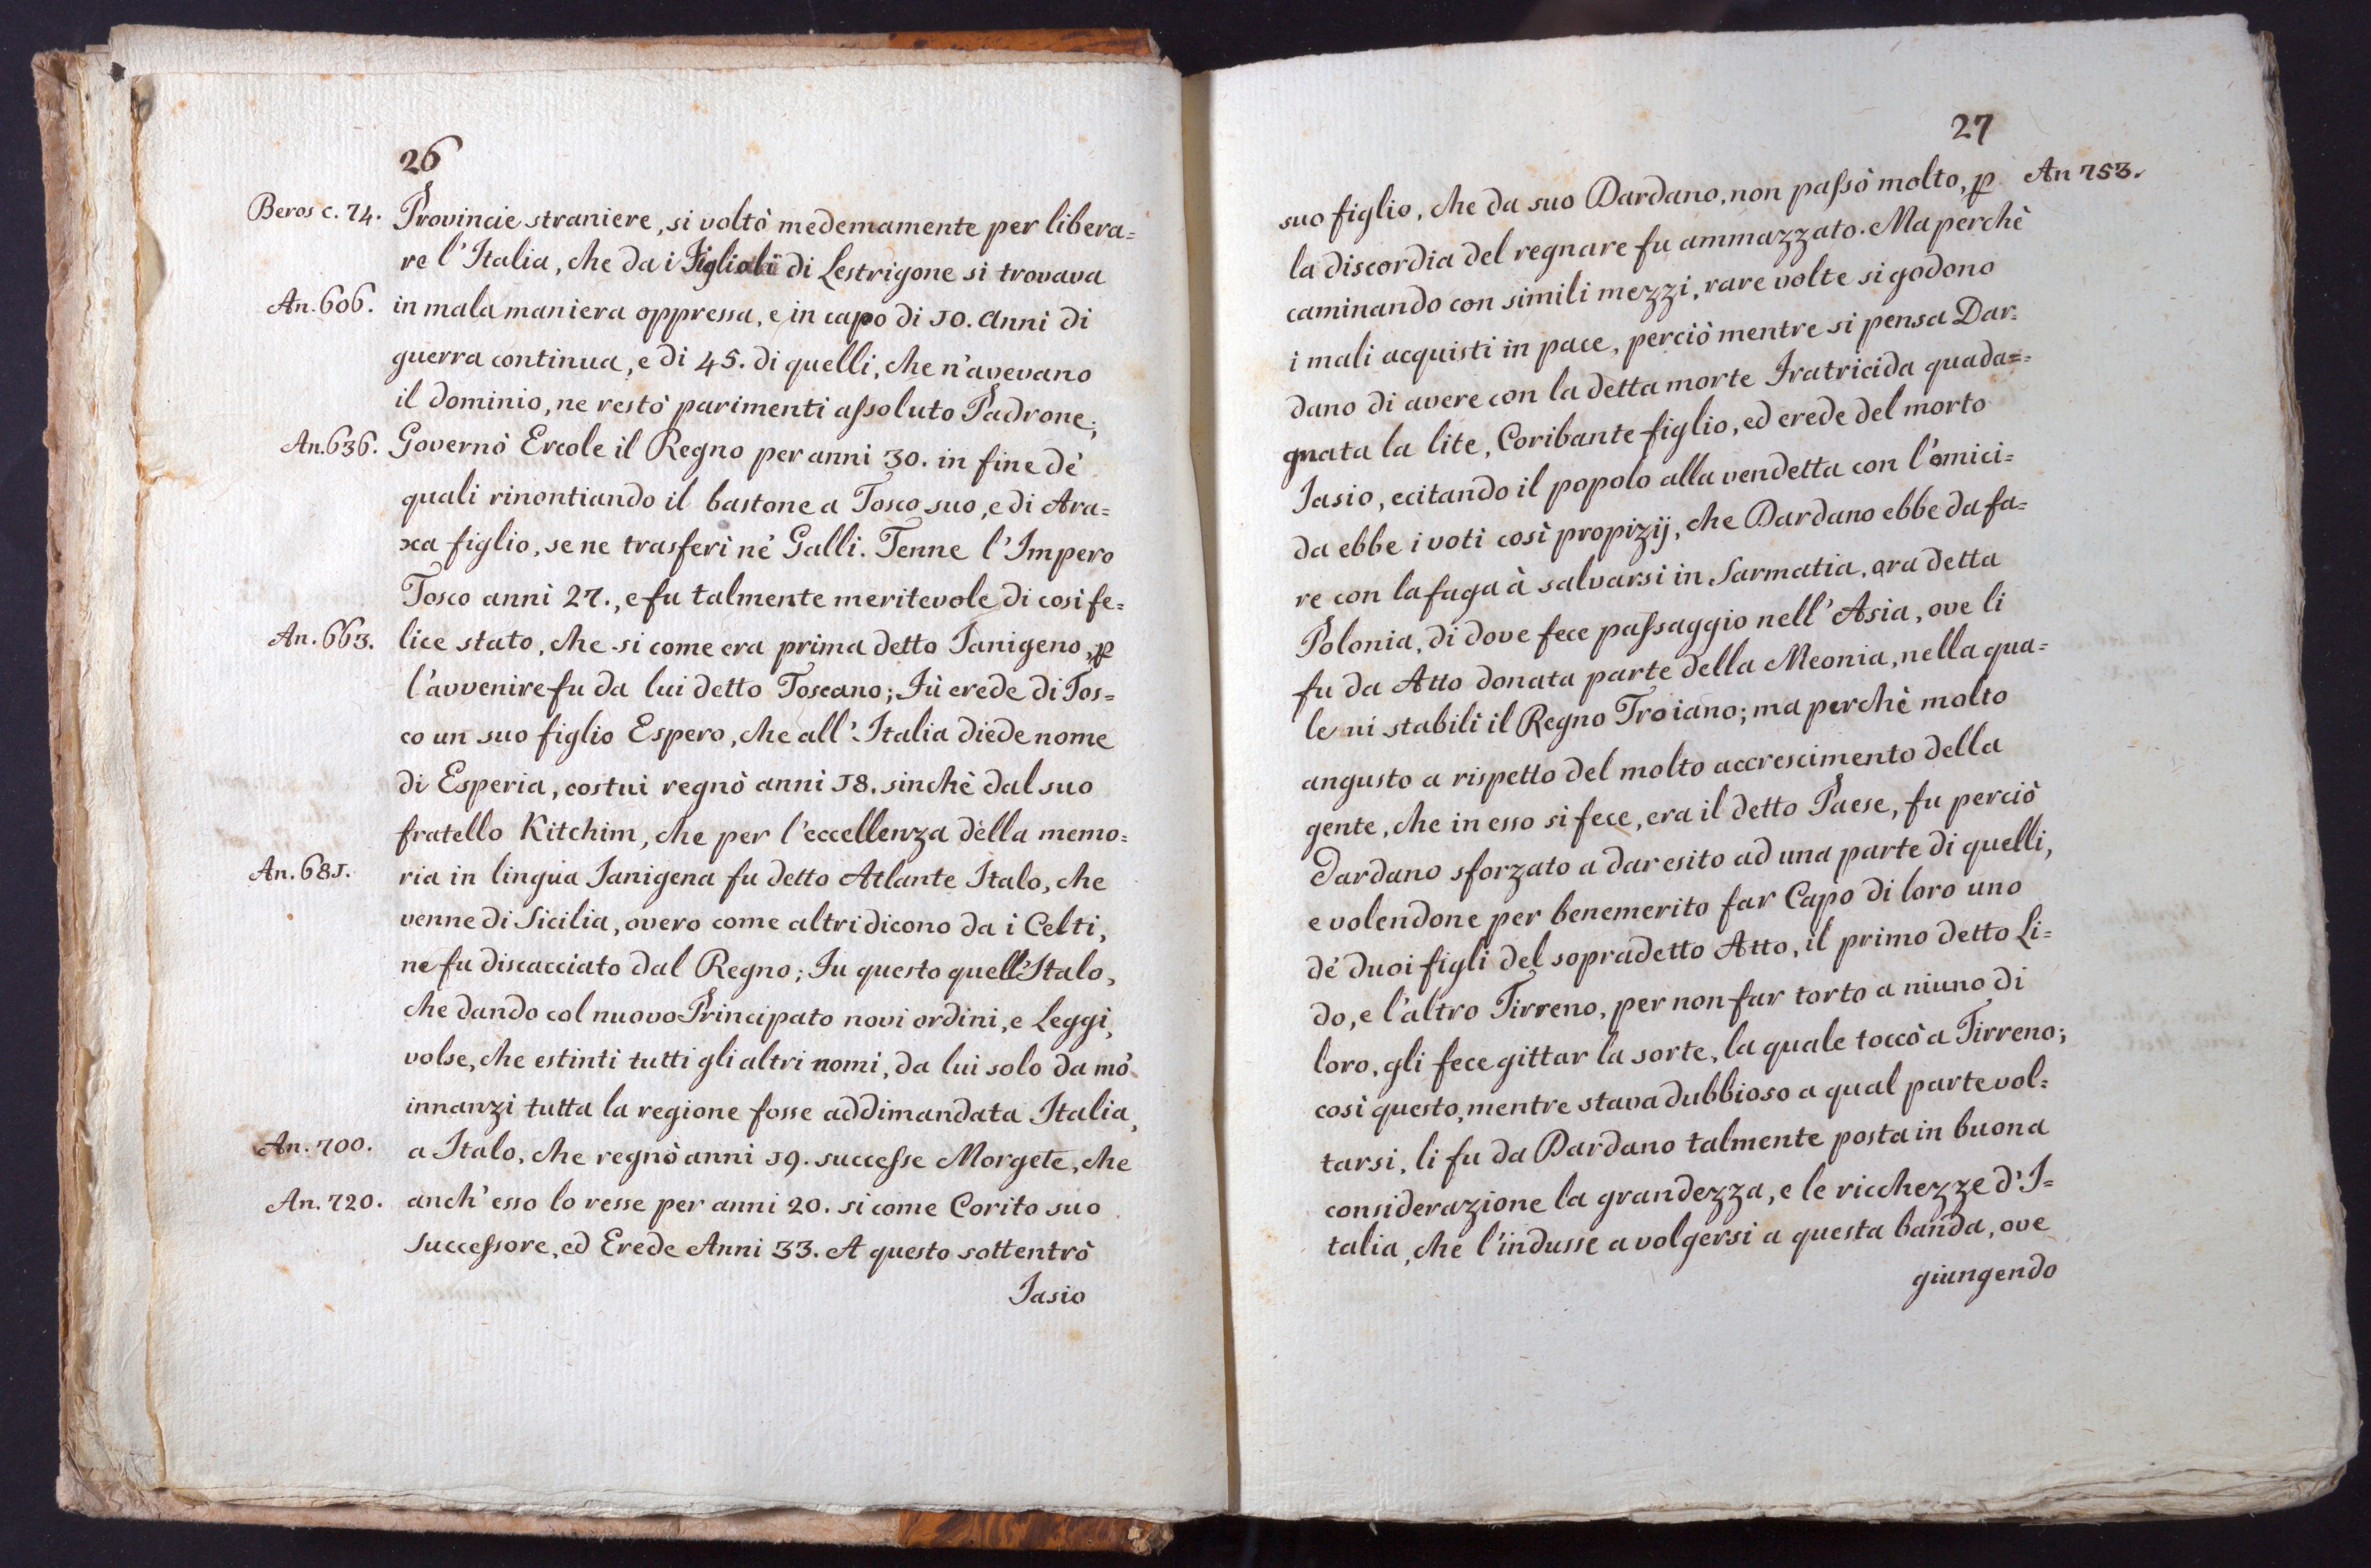 26
Beros c. 74. Provincie straniere, si voltò medemamente per libera=
re l'Italia, che da i Figlioli di Lestrigone si trovava
An. 606. in mala maniera oppressa, e in capo di 10. Anni di
guerra continua, e di 45. di quelli, che n'avevano
il dominio, ne restò parimenti assoluto Padrone;
An. 636. Governò Ercole il Regno per anni 30. in fine de'
quali rinontiando il bastone a Tosco suo, e di Ara=
xa figlio, se ne trasferì ne' Galli. Tenne l'Impero
Tosco anni 27., e fu talmente meritevole di cosi fe=
An. 663. lice stato, che si come era prima detto Ianigeno, ꝑ
l'avvenire fu da lui detto Toscano; Fù erede di Tos=
co un suo figlio Espero, che all'Italia diede nome
di Esperia, costui regnò anni 18. sinchè dal suo
fratello Kitchim, che per l'eccellenza della memo=
An. 681. ria in lingua Ianigena fu detto Atlante Italo, che
venne di Sicilia, overo come altri dicono da i Celti,
ne fu discacciato dal Regno; Fu questo quell'Italo,
che dando col nuovo Principato novi ordini, e Leggi,
volse, che estinti tutti gli altri nomi, da lui solo da mò
innanzi tutta la regione fosse addimandata Italia,
An. 700. a Italo, che regnò anni 19. successe Morgete, che
An. 720. anch'esso lo resse per anni 20. si come Corito suo
Successore, ed Erede Anni 33. A questo sottentrò
Iasio
27
suo figlio, che da suo Dardano, non passò molto, ꝑ An 753.
la discordia del regnare fu ammazzato. Ma perchè
caminando con simili mezzi, rare volte si godono
i mali acquisti in pace, perciò mentre si pensa Dar=
dano di avere con la detta morte Fratricida quada=
gnata la lite, Coribante figlio, ed erede del morto
Iasio, ecitando il popolo alla vendetta con l'omici=
da ebbe i voti così propizij, che Dardano ebbe da fa=
re con la fuga à salvarsi in Sarmatia, ora detta
Polonia, di dove fece passaggio nell'Asia, ove li
fu da Atto donata parte della Meonia, nella qua=
le vi stabilì il Regno Troiano; ma perchè molto
angusto a rispetto del molto accrescimento della
gente, che in esso si fece, era il detto Paese, fu perciò
Dardano sforzato a dar esito ad una parte di quelli,
e volendone per benemerito far Capo di loro uno
de' duoi figli del sopradetto Atto, il primo detto Li=
do, e l'altro Tirreno, per non far torto a niuno di
loro, gli fece gittar la sorte, la quale toccò a Tirreno;
così questo, mentre stava dubbioso a qual parte vol=
tarsi, li fu da Dardano talmente posta in buona
considerazione la grandezza, e le ricchezze d'I=
talia, che l'indusse a volgersi a questa banda, ove
giungendo